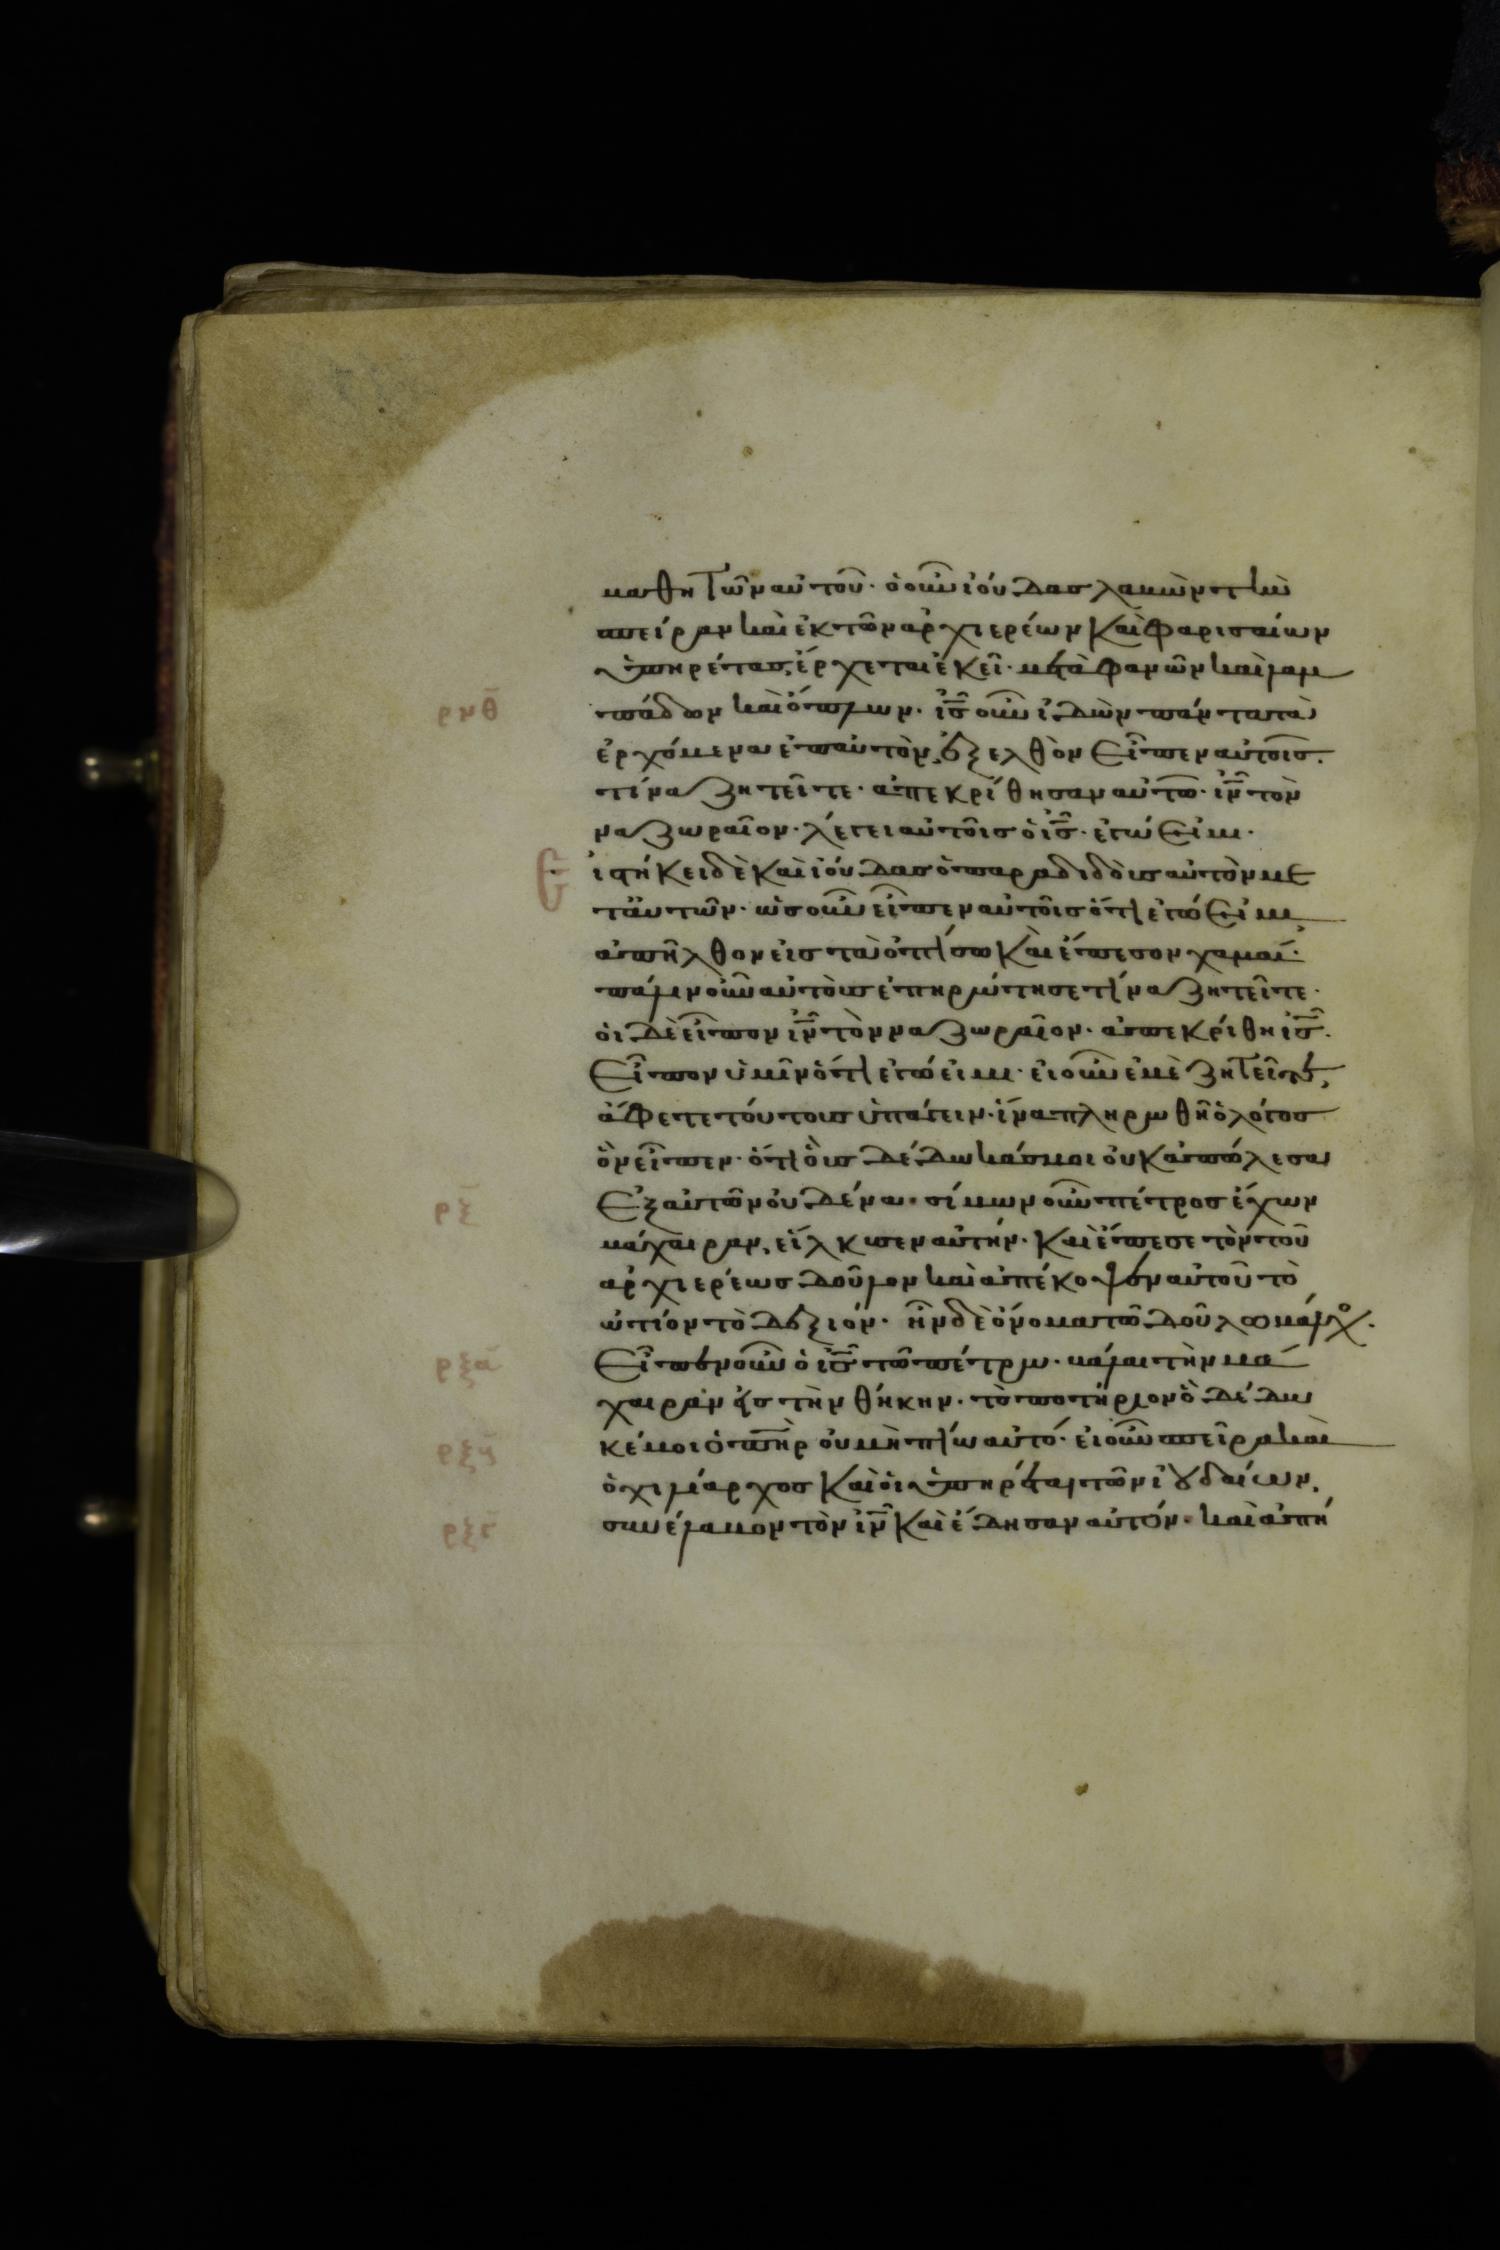 μαθητῶν αὐτοῦ· ὁ οὖν ἰούδασ λαβὼν τὴν
σπείραν καὶ ἐκ τῶν ἀρχιερέων καὶ φαρισαίων
ὑπηρέτασ, ἔρχεται ἐκεῖ· μετὰ φανῶν καὶ λαμ
πάδων καὶ ὅπλων· ἰ̅ς̅ οὖν ἰδὼν πάντα τὰ
ἐρχόμενα ἐπ αὐτὸν, ἐξελθὸν εἶπεν αὐτοῖσ.
τίνα ζητεῖτε· ἀπεκρίθησαν αὐτῶ· ἰ̅ν̅ τὸν
ναζωραῖον· λέγει αὐτοῖσ ὁ ἰ̅ς̅· ἐγώ εἰμι·
ἱστήκει δὲ καὶ ἰούδασ ὁ παραδιδοὺσ αὐτὸν με
τ αὐτῶν· ὡσ οὖν εἶπεν αὐτοῖσ ὅτι ἐγώ εἰμι
ἀπῆλθον εἰσ τὰ ὀπίσω καὶ ἔπεσον χαμαί·
πάλιν οὖν αὐτοὺσ ἐπηρώτησε τίνα ζητεῖτε·
οἱ δὲ εἶπον ἰ̅ν̅ τὸν ναζωραῖον· ἀπεκρίθη ἰ̅ς̅.
εἶπον ὑμῖν ὅτι ἐγώ εἰμι· εἰ οὖν ἐμὲ ζητεῖτε,
ἄφετε τούτουσ ὑπάγειν· ἵνα πληρωθῆ ὁ λόγοσ
ὃν εἶπεν· ὅτι οὓσ δέδωκάσ μοι οὐκ ἀπώλεσα
ἐξ αὐτῶν οὐδένα· σίμων οὖν πέτροσ ἔχων
μάχαιραν, εἵλκυσεν αὐτήν· καὶ ἔπεσε τὸν τοῦ
ἀρχιερέωσ δοῦλον καὶ ἀπέκοψεν αὐτοῦ τὸ
ὠτίον τὸ δεξιόν· ἦν δὲ ὄνομα τῶ δούλω μάλχο̣.
εἶπεν οὖν ὁ ἰ̅ς̅ τῶ πέτρω· βάλαι τὴν μά
χαιραν εἰσ τὴν θήκην· τὸ ποτήριον ὃ δέδω
κέ μοι ὁ π̅η̅ρ̅ οὐ μὴ πίω αὐτό· εἰ οὖν σπεῖρα καὶ
ὁ χιλίαρχοσ καὶ οἱ ὑπηρέται τῶν ἰουδαίων,
συνέλαβον τὸν ἰ̅ν̅ καὶ ἔδησαν αὐτόν· καὶ ἀπή